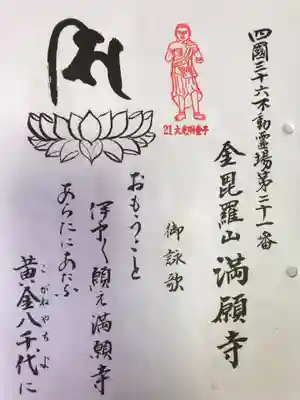 四國三十六不動霊場第二十一番
金毘羅山 満願寺
御詠歌
おもうこと
伊予く願え満願寺
あらたにあたふ
黄金八千代に
こがねやちよ
21 大光明童子